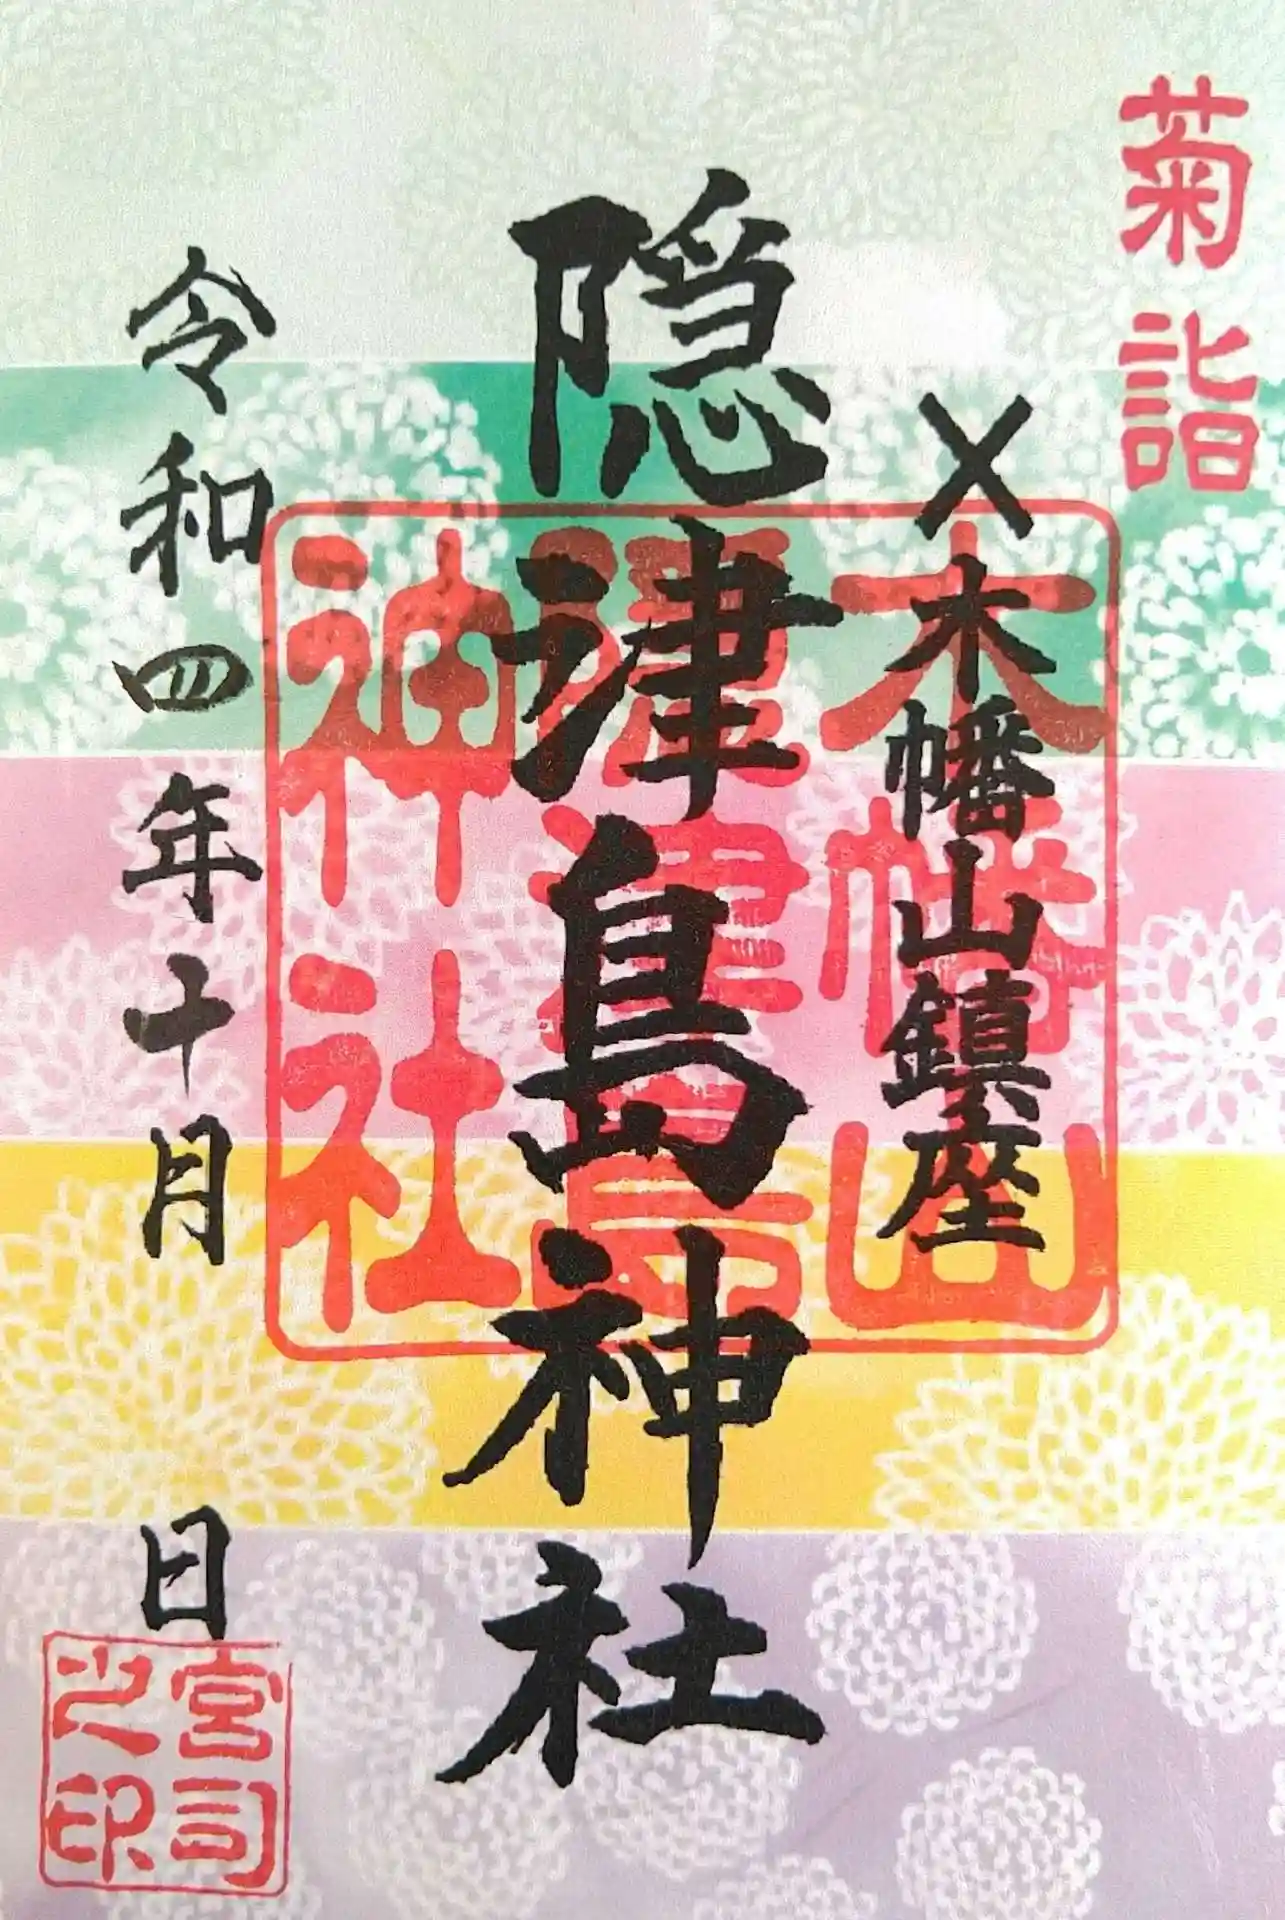 菊詣
×木幡山鎮座
隠津島神社
令和四年十月 日
木幡山
神社
宮司
之印